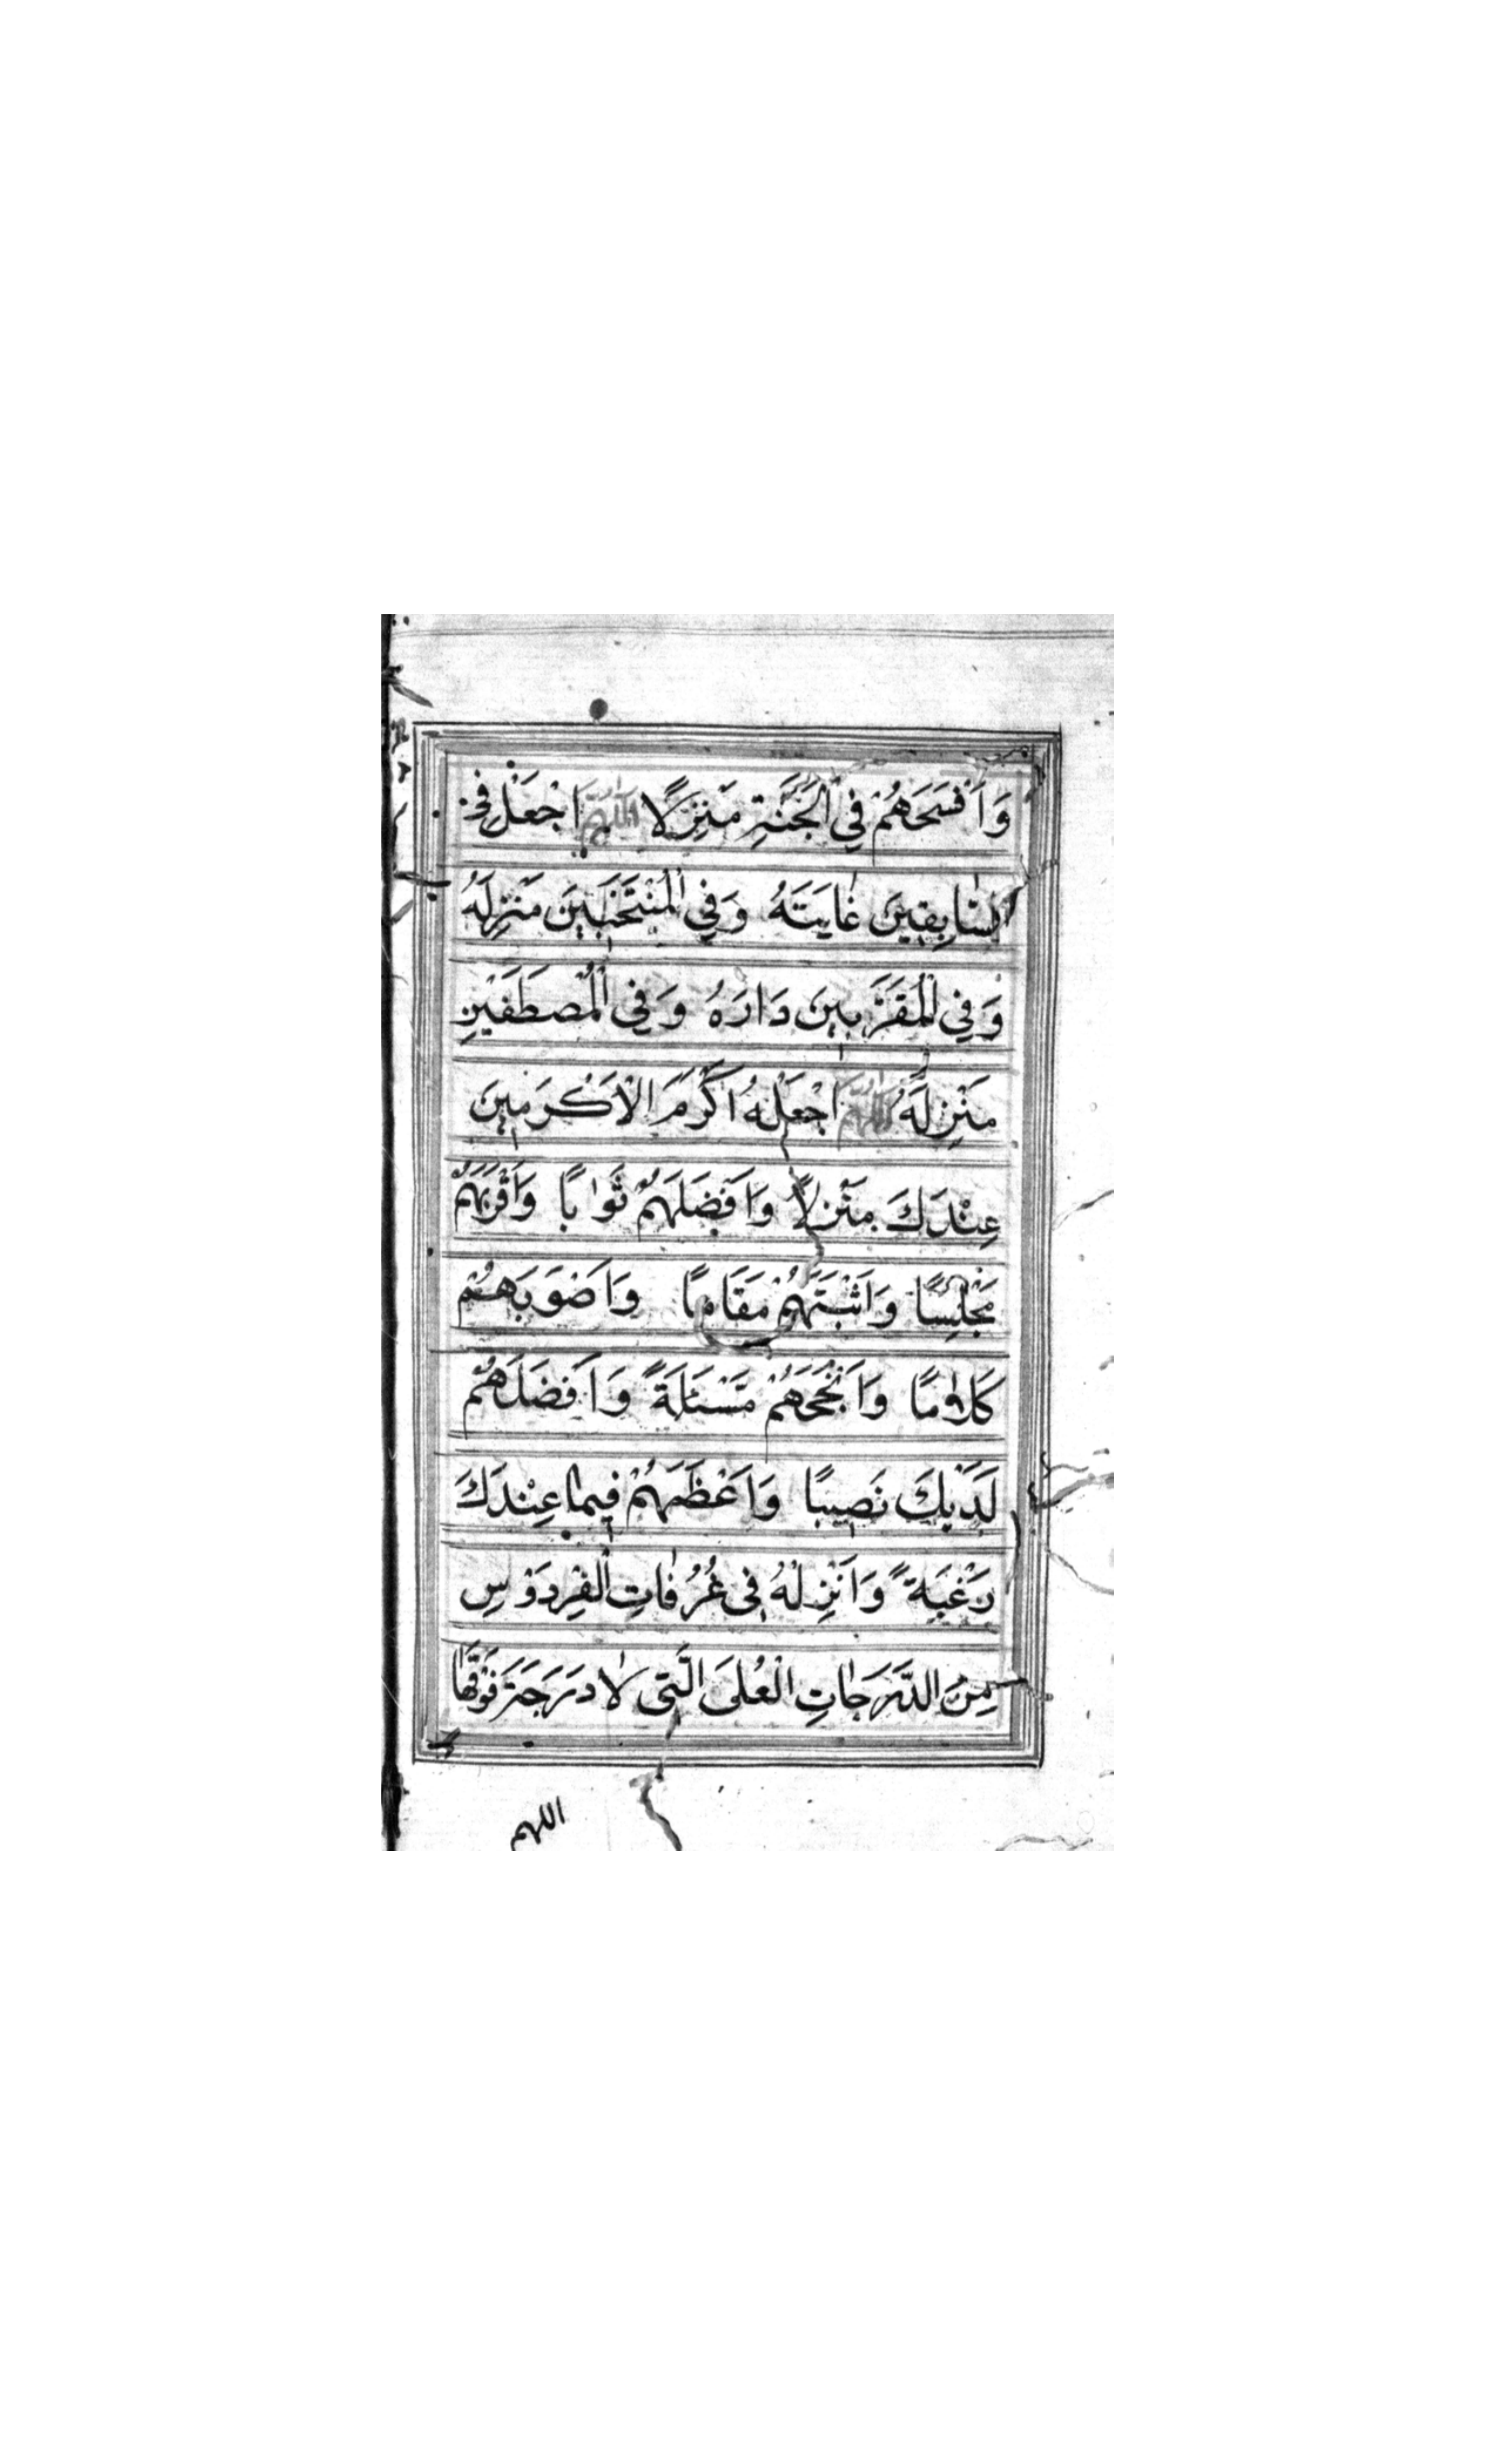 وَاَفْسَحَهُمْ فِي الْجَنَّةِ مَنْزِلًا اَللّٰهُمَّ اجْعَلْ فِي
السّٰابِقينَ غٰايَتَهُ وَفِي الْمُنْتَجَبينَ مَنْزِلَهُ
وَفِي الْمُقَرَّبينَ دَارَهُ وَفِي الْمُصْطَفَيْنَ
مَنْزِلَهُ اَللّٰهُمَّ اجْعَلْهُ اَكْرَمَ الْاَكْرَمينَ
عِنْدَكَ مَنْزِلًا وَاَفْضَلَهُمْ ثَوٰابًا وَاَقْرَبَهُمْ
مَجْلِسًا وَاَثْبَتَهُمْ مَقَامًا وَاَصْوَبَهُمْ
كَلٰامًا وَاَنْجَحَهُمْ مَسْئَلَةً وَاَفْضَلَهُمْ
لَدَيْكَ نَصيبًا وَاَعْظَمَهُمْ فيمٰا عِنْدَكَ
رَغْبَةً وَاَنْزِلْهُ فى غُرُفٰاتِ الْفِرْدَوْسِ
مِنَ الدَّرَجٰاتِ الْعُلَى الَّتى لٰا دَرَجَةَ فَوْقَهٰا
اللهم